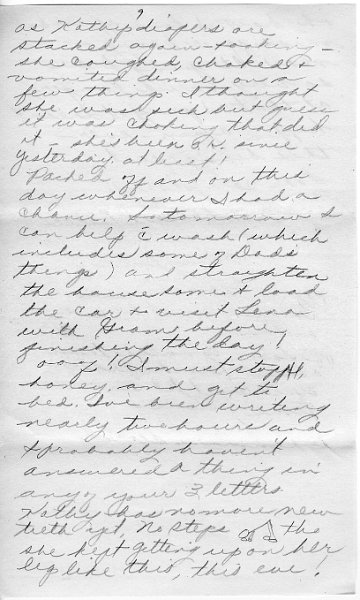 9
as Kathy's diapers are
stacked again & soaking –
she coughed, choked &
vomited dinner on a
few things. I thought
she was sick but guess
it was choking that did
it – she's been OK since
yesterday at least!
Packed off and on this
day whenever I had a
chance. So tomorrow I
can help c̄ wash (which
includes some of Dad's
things) and straighten
the house some & load
the car & visit Lena
with Gram before
finishing the day!
Oooy! I must stop,
honey, and get to
bed. I've been writing
nearly two hours and
& probably haven't
answered a thing in
any of your 3 letters.
Kathy has no more new
teeth yet, no steps tho
she kept getting up on her
leg like this, this eve!